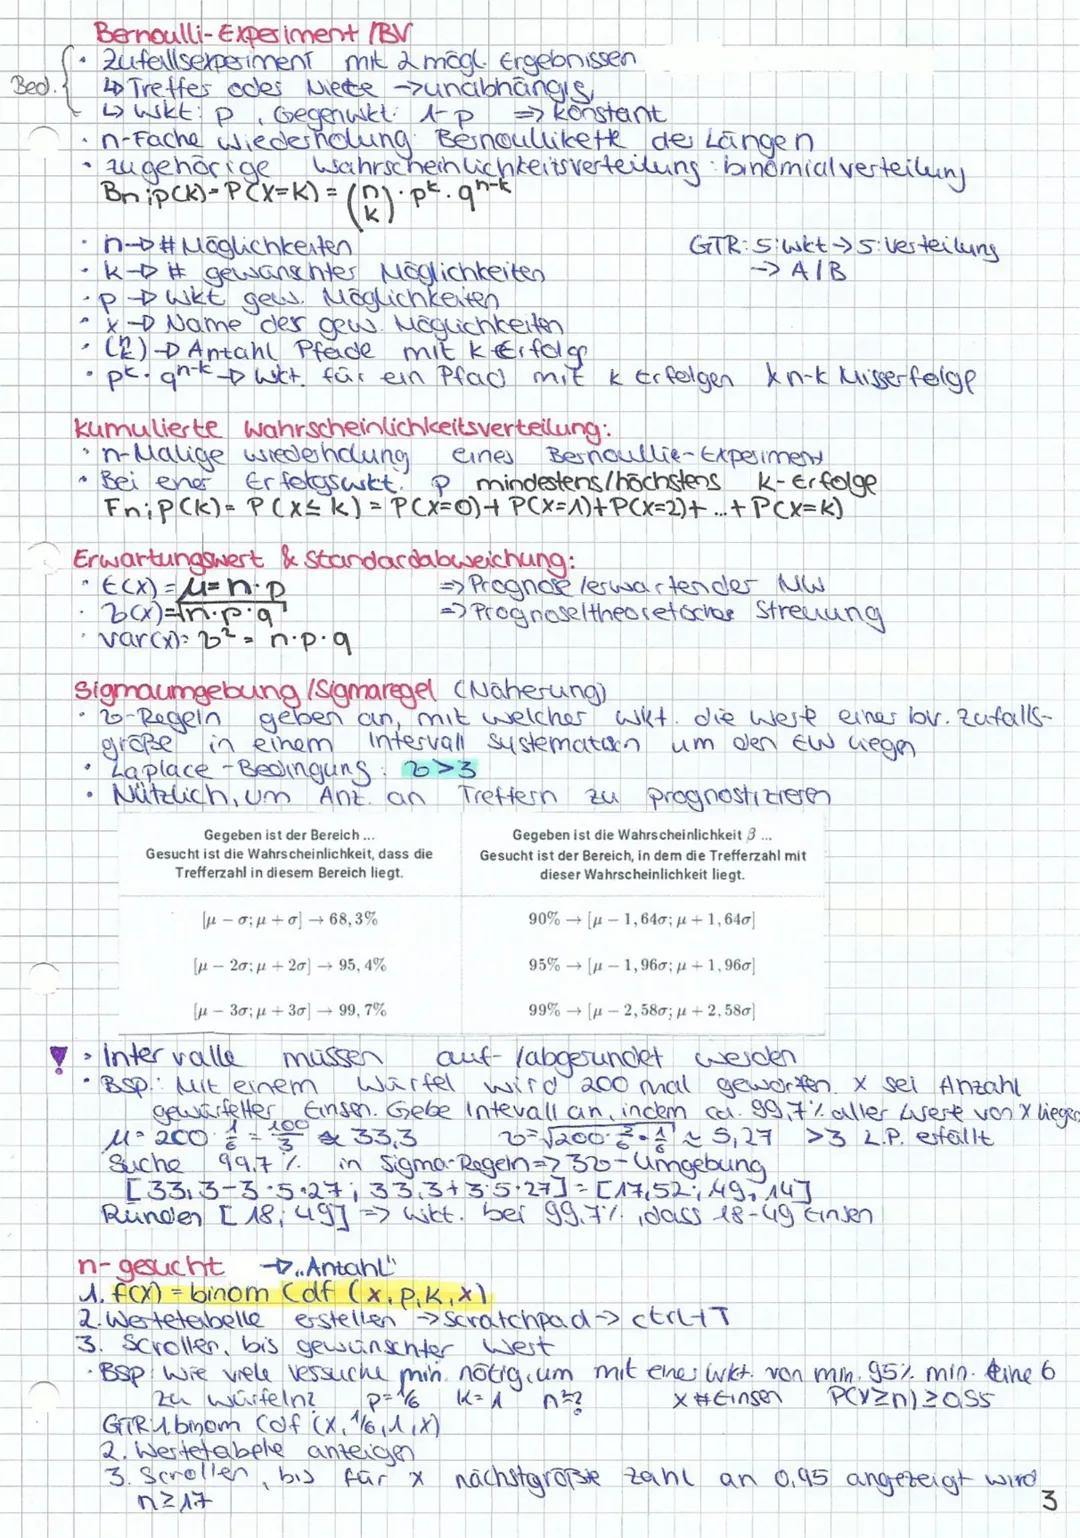 Bernoulli-Experiment /BV
• Zufallsexperiment mit 2 mögl. Ergebnissen
Bed. ↳ Treffer oder Niete → unabhängig
↳ Wkt: p, Gegenwkt: 1-p => konstant
• n-Fache Wiederholung: Bernoullikette der Längen
• zugehörige Wahrscheinlichkeitsverteilung: binomialverteilung
Bn;p(k)=P(X=k) = (n k) · p^k · q^n-k
• n → # Möglichkeiten GTR: 5:Wkt → 5:Verteilung
• k → # gewünschter Möglichkeiten → A/B
• p → Wkt gew. Möglichkeiten
• x → Name der gew. Möglichkeiten
• (n k) → Antahl Pfade mit k Erfolge
• p^k · q^n-k → Wkt. für ein Pfad mit k Erfolgen & n-k Misserfolge
kumulierte Wahrscheinlichkeitsverteilung:
• n-Malige Wiederholung eines Bernoullie-Experiment
• Bei einer Erfolgswkt. p mindestens/höchstens k-Erfolge
Fn;p(k) = P(X≤k) = P(X=0)+P(X=1)+P(X=2)+...+P(X=k)
Erwartungswert & Standardabweichung:
• E(X) = μ = n·p => Prognose/erwartender MW
• σ(x)=√n·p·q => Prognose/theoretischer Streuung
• var(x): σ² = n·p·q
Sigmaumgebung/Sigmaregel (Näherung)
• σ-Regeln geben an, mit welcher Wkt. die Werte einer bv. Zufalls-
größe in einem Intervall systematisch um den EW liegen
• Laplace-Bedingung: σ>3
• Nützlich, um Anz. an Treffern zu prognostizieren
Gegeben ist der Bereich ... Gegeben ist die Wahrscheinlichkeit β ...
Gesucht ist die Wahrscheinlichkeit, dass die Gesucht ist der Bereich, in dem die Trefferzahl mit
Trefferzahl in diesem Bereich liegt. dieser Wahrscheinlichkeit liegt.
[μ − σ; μ + σ] → 68,3% 90% → [μ − 1,64σ; μ + 1,64σ]
[μ − 2σ; μ + 2σ] → 95,4% 95% → [μ − 1,96σ; μ + 1,96σ]
[μ − 3σ; μ + 3σ] → 99,7% 99% → [μ − 2,58σ; μ + 2,58σ]
! • Intervalle müssen auf-/abgerundet werden
• BSP.: Mit einem Würfel wird 200 mal geworfen. X sei Anzahl
gewürfelter Einsen. Gebe Intevall an, indem ca. 99,7% aller Werte von X liegen
μ = 200 · 1/6 = 100/3 ≈ 33,3 σ=√200·5/6·1/6 ≈ 5,27 >3 L.P. erfüllt
Suche 99,7% in Sigma-Regeln => 3σ-Umgebung
[33,3-3·5,27; 33,3+3·5,27] = [17,52; 49,14]
Runden [18; 49] => Wkt. bei 99,7%, dass 18-49 Einsen
n-gesucht → „Antahl"
1. f(x) = binom Cdf (x,p,k,x)
2. Wertetabelle erstellen → Scratchpad → ctrl+T
3. Scrollen, bis gewünschter Wert
• BSP: Wie viele Versuche min. nötig, um mit einer Wkt. von min. 95% min. eine 6
zu würfeln? p=1/6 k=1 n=? X #Einsen P(Y≥n)≥0,95
GTR 1. binom Cdf (x,1/6,1,x)
2. Wertetabelle anzeigen
3. Scrollen, bis für x nächstgrößte Zahl an 0,95 angezeigt wird
n≥17
3